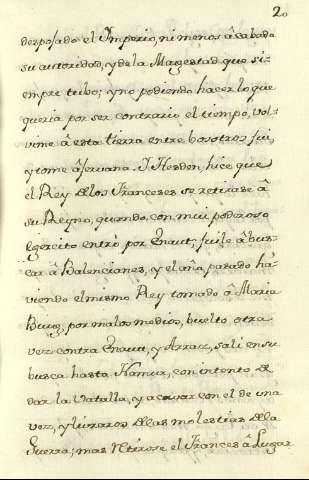 20
despojado el Imperio, ni menos âcabada
su autoridad, y de la Magestad que si-
empre tubo; y no podiendo hacer lo que
queria por ser contrario el tiempo, vol-
vime â esta tierra entre bosotros fui,
y tome â Teruana. I Hesdin, hice que
el Rey de los Franceses se retirase â
su Reyno, quando, con mui poderoso
Egercito entrò por Enaut; fuile â bus-
car â Balencianes, y el año, pasado ha-
viendo el mismo Rey tomado â Maria
Burg, por malos medios, buelto otra
vez contra Enaut, y Arras, sali en su
busca hasta Namur, con intento de
dar la vatalla, y acavar con el de una
vez, y libraros de las molestias de la
Guerra; mas retirose el Frances â Lugar